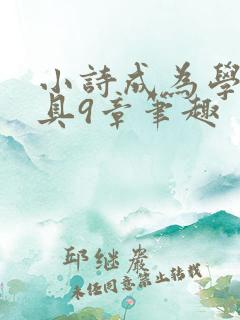 小詩成為學
具9章筆趣
邱继岩
未经同意禁止转载